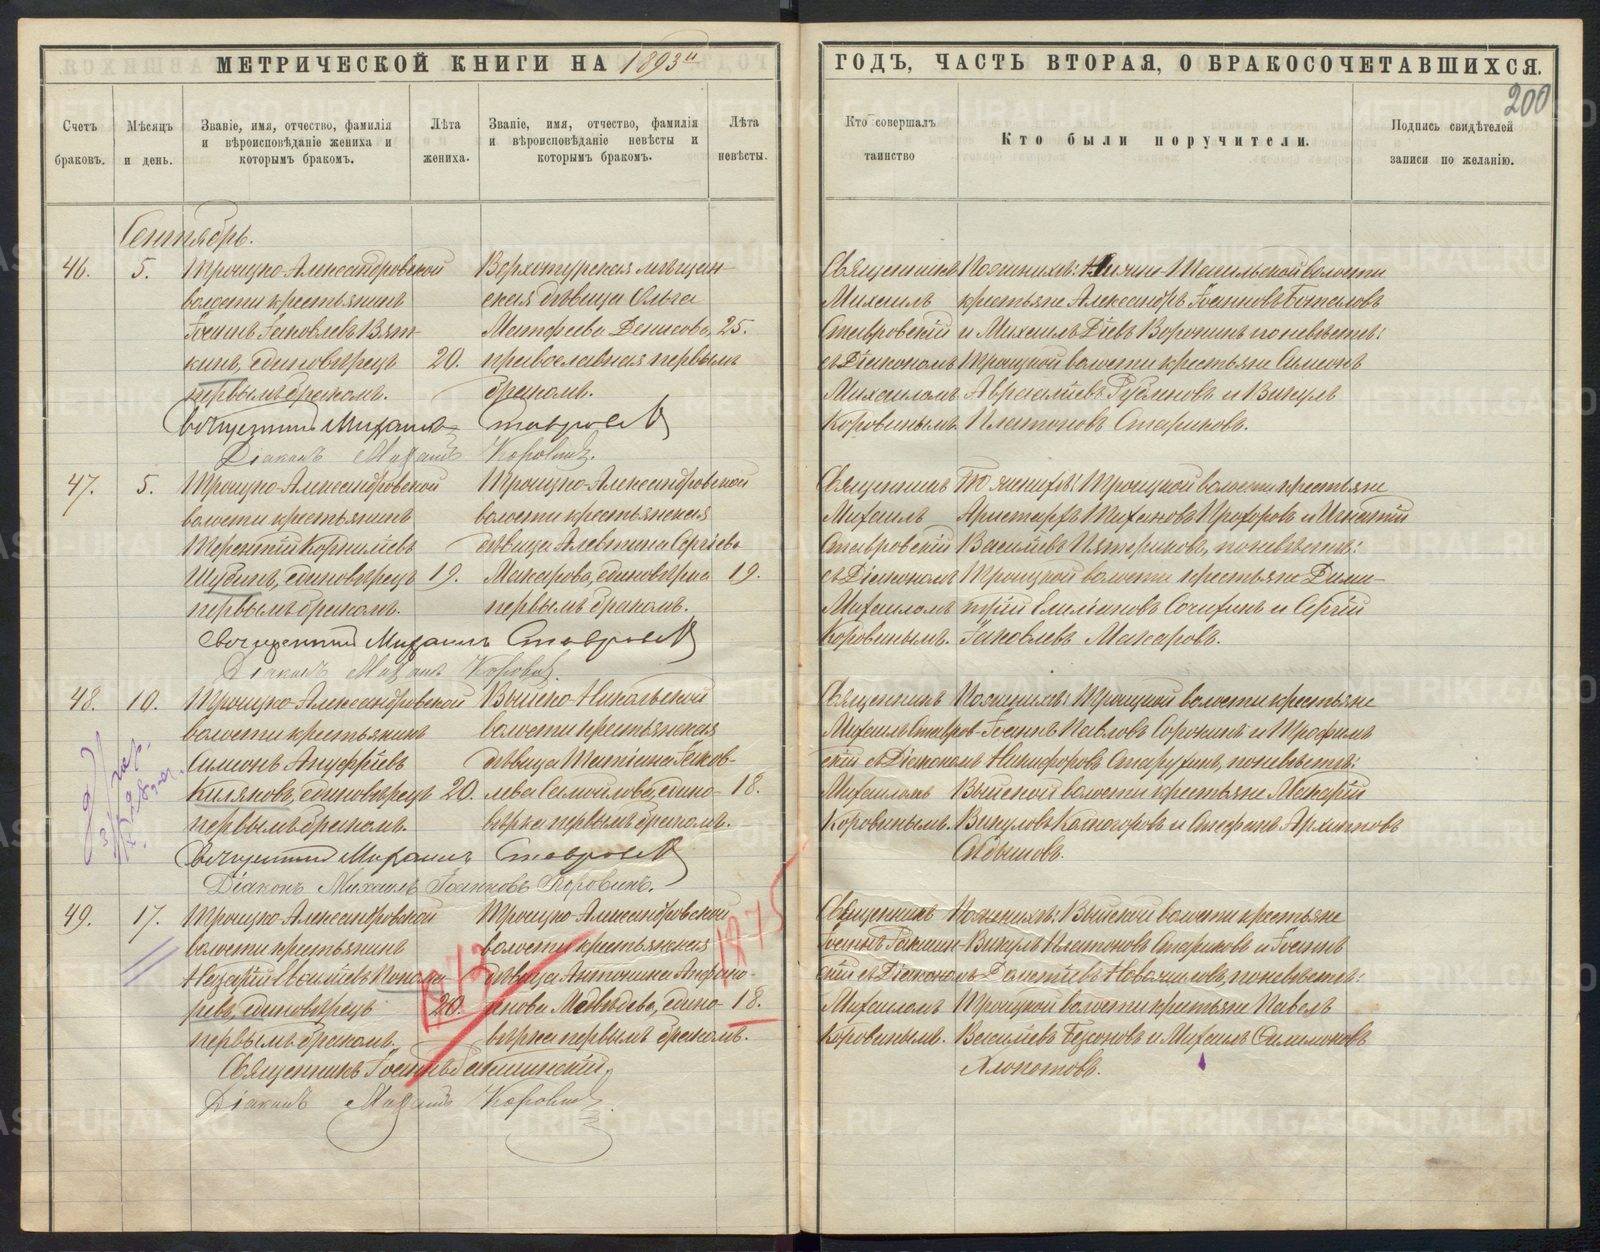 МЕТРИЧЕСКОЙ КНИГИ НА 1893й
Счетъ браковъ.
Мѣсяцъ и день.
Званіе, имя, отчество, фамилія и вѣроисповѣданіе жениха и которымъ бракомъ.
Лѣта жениха.
Званіе, имя, отчество, фамилія и вѣроисповѣданіе невѣсты и которымъ бракомъ.
Лѣта невѣсты.
Сентябрь.
46. 5. Троицко-Александровской Верхотурская мѣщан-
волости крестьянинъ ская дѣвица Ольга
Іоаннъ Іаковлевъ Вят- Матфеева Денисова 25.
кинъ, единовѣрецъ 20. православная первымъ
первымъ бракомъ. бракомъ.
Священникъ Михаилъ Ставровскій
Діаконъ Михаилъ Коровинъ.
47. 5. Троицко-Александровской Троицко-Александровской
волости крестьянинъ волости крестьянская
Терентій Корнилиевъ дѣвица Алевтина Сергіева
Шубинъ, единовѣрецъ 19. Макарова, единовѣрка 19.
первымъ бракомъ. первымъ бракомъ.
Священникъ Михаилъ Ставровскій
Діаконъ Михаилъ Коровинъ.
48. 10. Троицко-Александровской Выйско-Никольской
волости крестьянинъ волости крестьянская
Симеонъ Ануфріевъ дѣвица Татіана Іаков-
единовѣрецъ 20. лева Самойлова, едино- 18.
первымъ бракомъ. вѣрка первымъ бракомъ.
Священникъ Михаилъ Ставровскій
Діаконъ Михаилъ Іоанновъ Коровинъ.
49. 17. Троицко-Александровской Троицко-Александровской
волости крестьянинъ волости крестьянская
Назарій дѣвица Антонина
единовѣрецъ 20. Медвѣдева, едино- 18.
первымъ бракомъ. вѣрка первымъ бракомъ.
1873
1875
Священникъ Іоаннъ
Діаконъ Михаилъ Коровинъ.
ГОДЪ, ЧАСТЬ ВТОРАЯ, О БРАКОСОЧЕТАВШИХСЯ.
200
Кто совершалъ таинство
Кто были поручители.
Подпись свидѣтелей записи по желанію.
Священникъ По женихѣ: Тагильской волости
Михаилъ крестьяне Александръ Іоанновъ
Ставровскій и Михаилъ Діевъ Воронинъ по невѣстѣ:
съ Діакономъ Троицкой волости крестьяне Симеонъ
Михаиломъ и Викулъ
Коровинымъ. Платоновъ Стариковъ.
Священникъ По женихѣ: Троицкой волости крестьяне
Михаилъ Аристархъ Тихановъ Прохоровъ и Игнатій
Ставровскій Василіевъ по невѣстѣ:
съ Діакономъ Троицкой волости крестьяне Дими-
Михаиломъ трій Емиліановъ и Сергій
Коровинымъ. Іаковлевъ Макаровъ.
Священникъ По женихѣ: Троицкой волости крестьяне
Михаилъ Ставров- Іоаннъ Павловъ Сорокинъ и Трофимъ
скій съ Діакономъ Никифоровъ по невѣстѣ:
Михаиломъ Выйской волости крестьяне Макарій
Коровинымъ. Викуловъ и Стефанъ Архиповъ
Священникъ По женихѣ: Выйской волости крестьяне
Іоаннъ Викулъ Платоновъ Стариковъ и Іоаннъ
скій съ Діакономъ по невѣстѣ:
Михаиломъ Троицкой волости крестьяне Павелъ
Коровинымъ. Василіевъ и Михаилъ Симеоновъ
Хлопотовъ.
METRIKI.GASO-URAL.RU